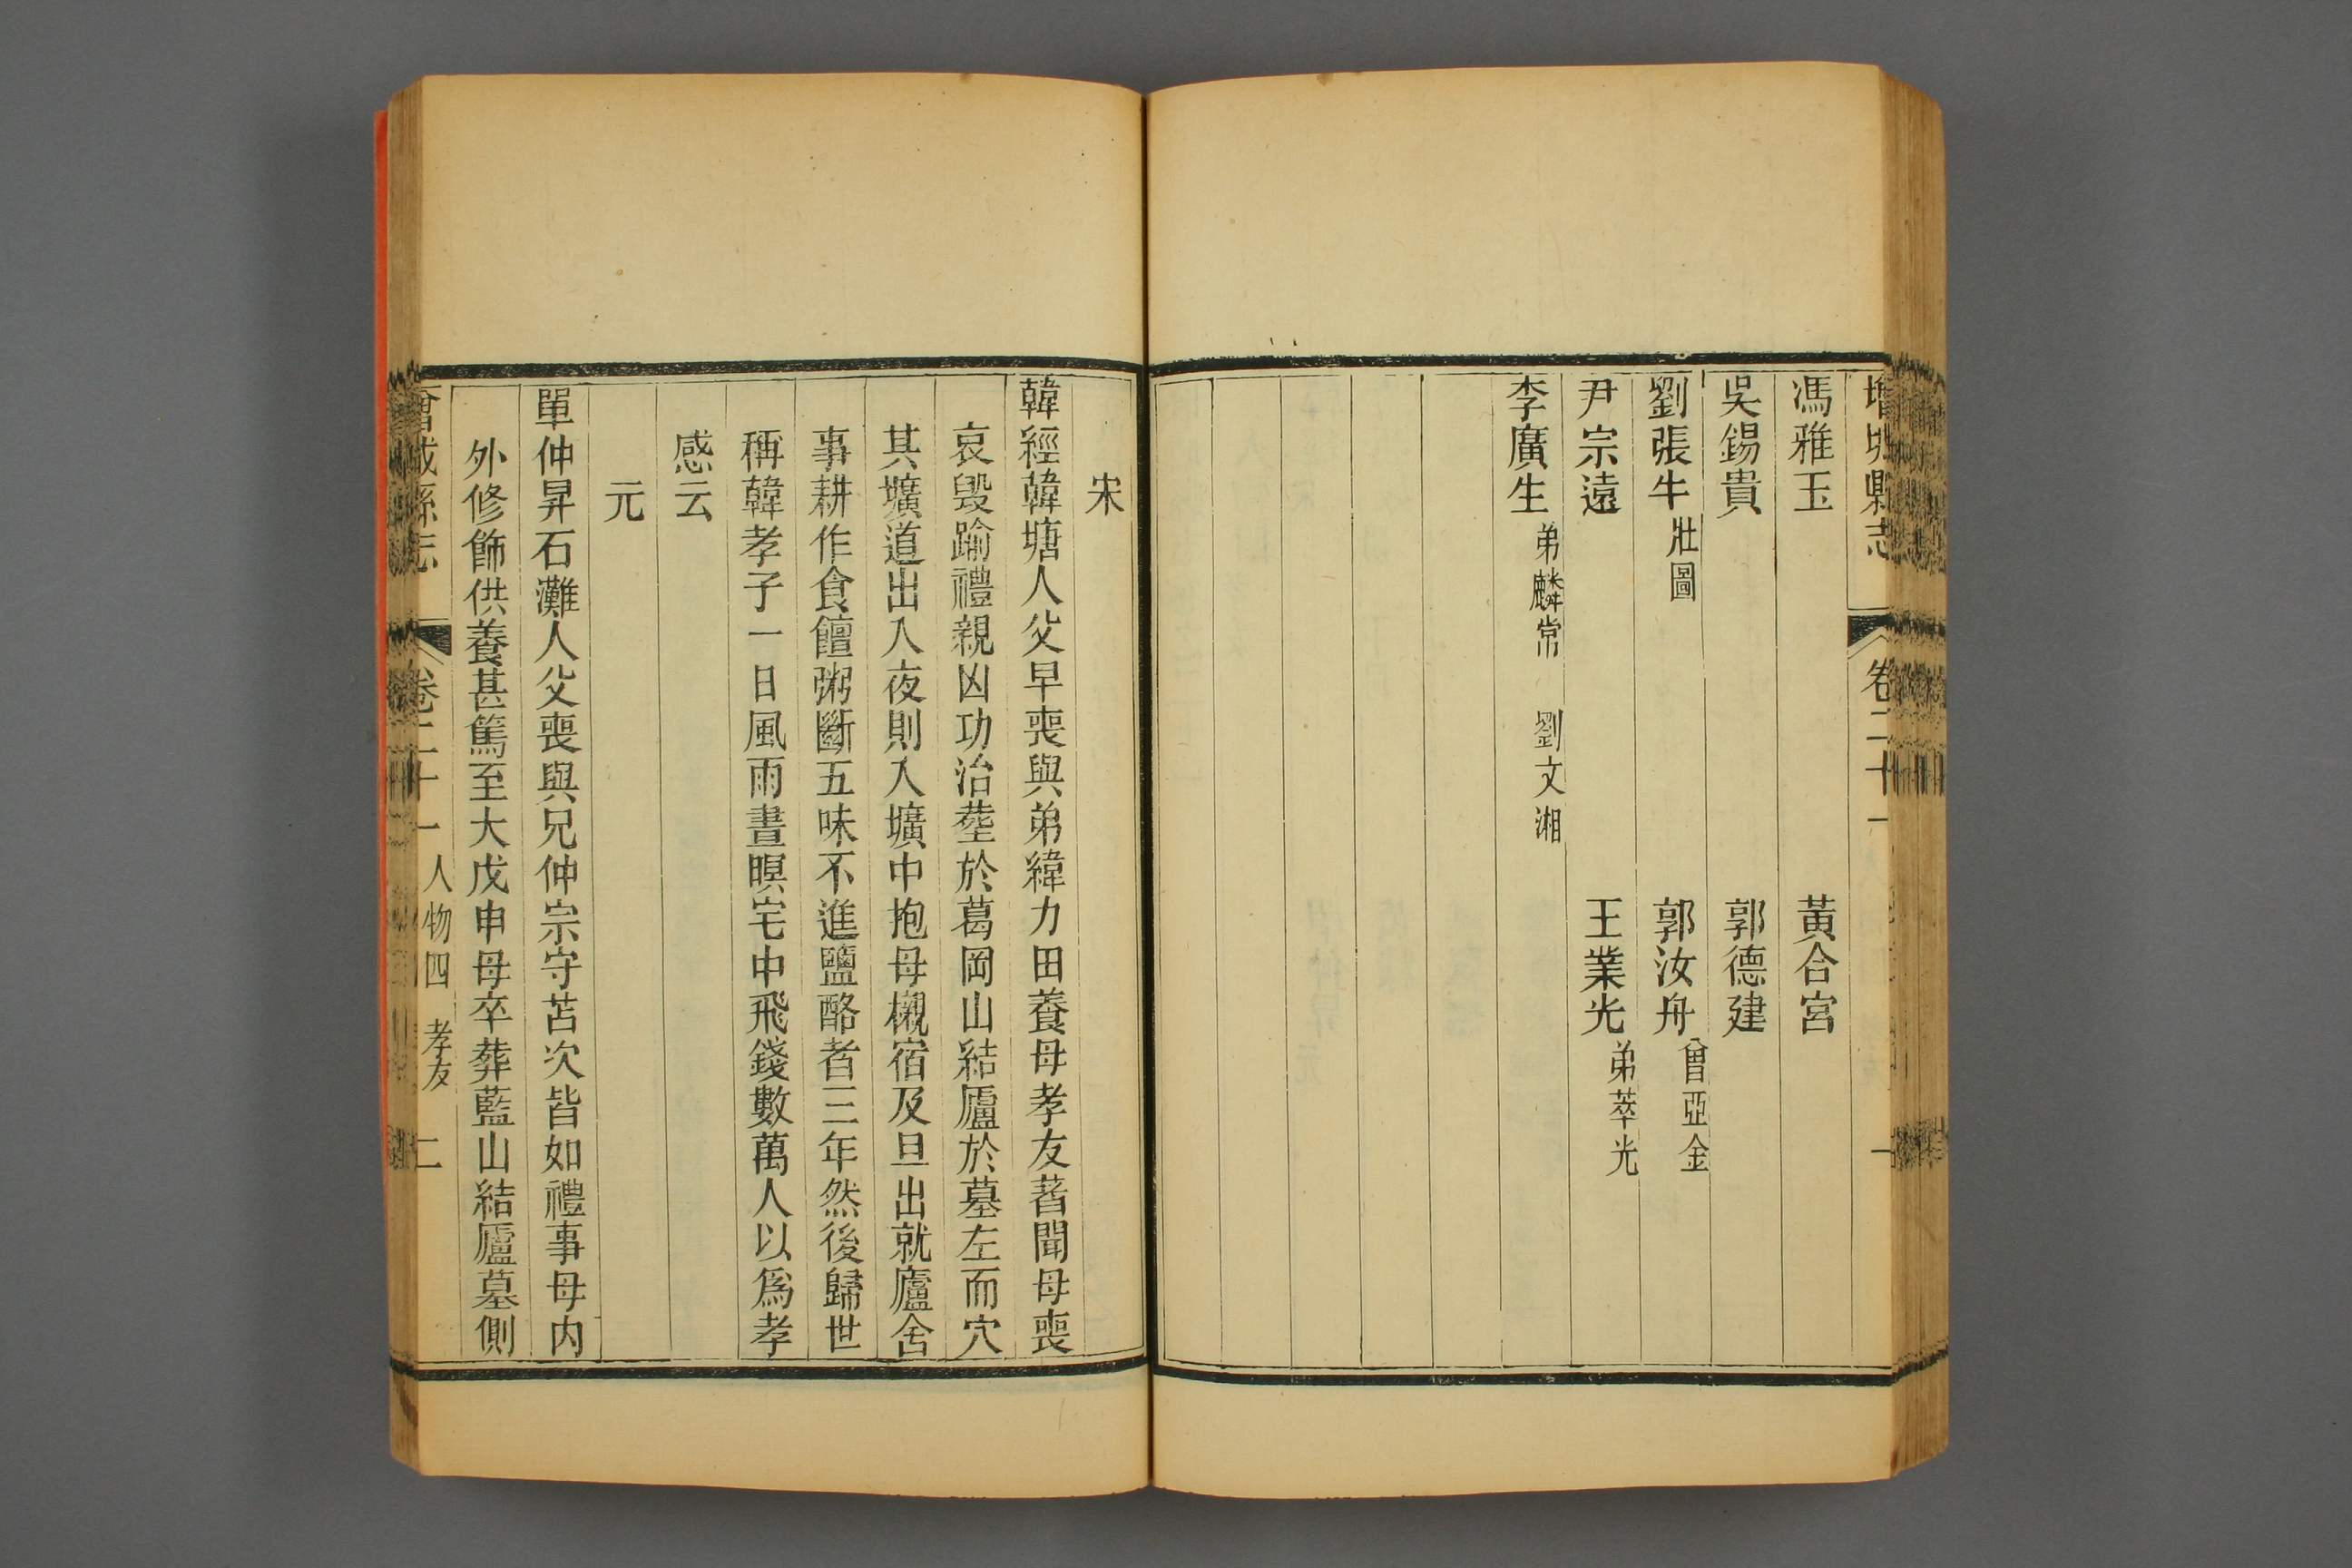 增城縣志 卷二十一 一
馮雅玉 黃合宮
吳錫貴 郭德建
劉張牛 壯圖 郭汝舟 曾亞金
尹宗遠 王業光 弟萃光
李廣生 弟麟常 劉文湘
宋
韓經韓塘人父早喪與弟緯力田養母孝友著聞母喪
哀毀踰禮親凶功治塟於葛岡山結廬於墓左而穴
其壙道出入夜則入壙中抱母櫬宿及旦出就廬舍
事耕作食饘粥斷五味不進鹽酪者三年然後歸世
稱韓孝子一日風雨晝暝宅中飛錢數萬人以爲孝
感云
元
單仲昇石灘人父喪與兄仲宗守苫次皆如禮事母內
外修飾供養甚篤至大戊申母卒葬藍山結廬墓側
曾城縣志 卷二十一 人物四 孝友 二